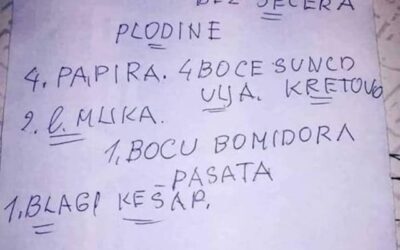 BEZ ŠEĆERA
PLODINE
4. PAPIRA. 4 BOCE SUNCO
ULJA. KRETOVO
2. l. MLIKA.
1, BOCU BOMIDORA
– PASATA
1. BLAGI KEŠAP.